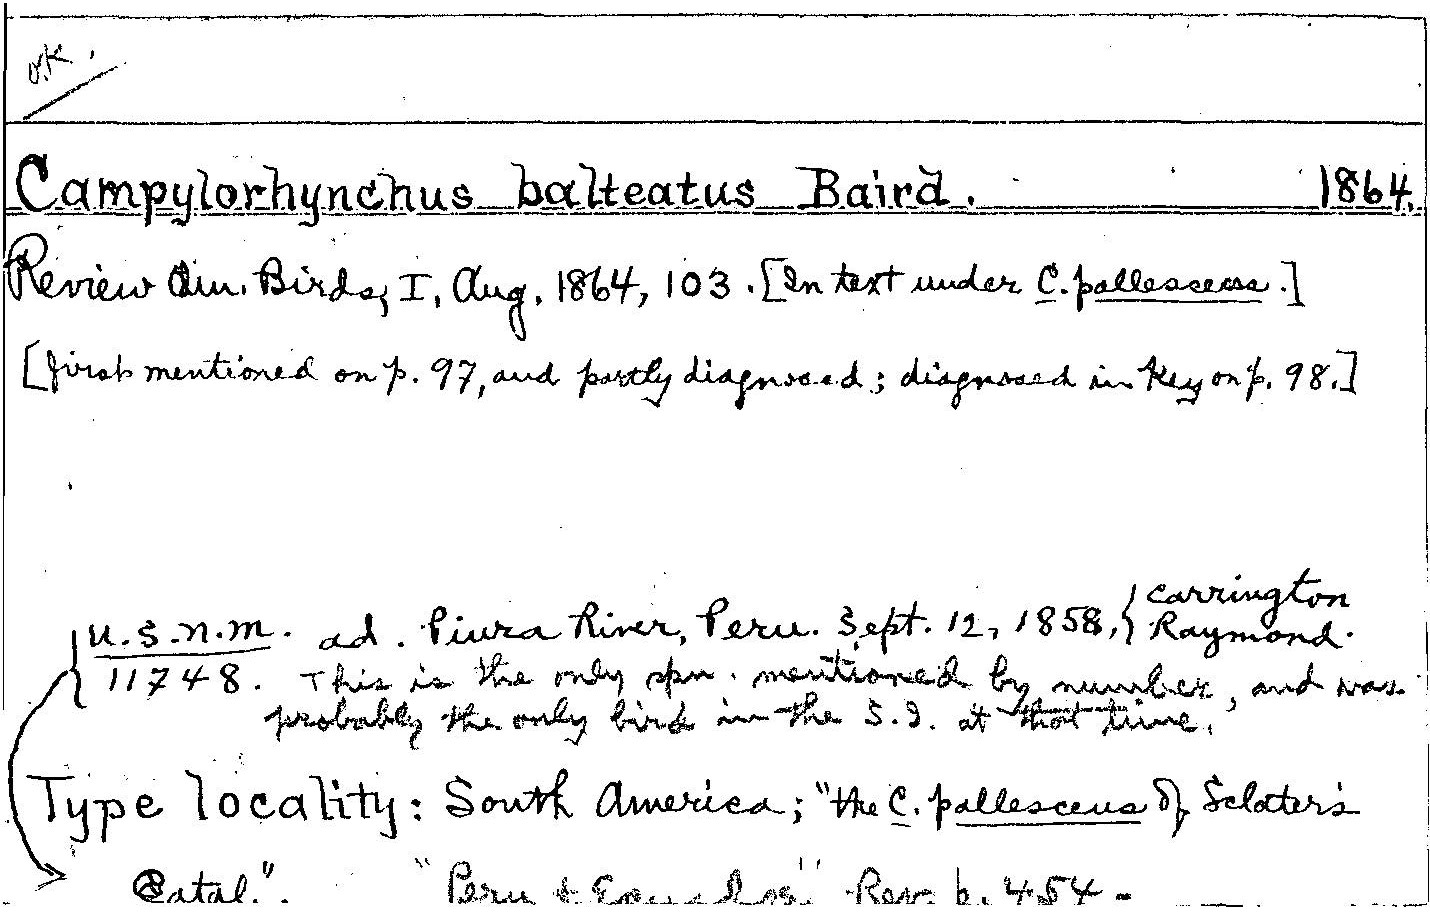 O.K.
Campylorhynchus balteatus Baird. 1864.
Review Am. Birds, I, Aug. 1864, 103. [In text under C. pallescens.]
[first mentioned on p. 97, and partly diagnosed; diagnosed in Key on p. 98.]
U.S.N.M. ad. Piura River, Peru. Sept. 12, 1858, { Carrington
Raymond.
11748. This is the only spn. mentioned by number, and was
probably the only bird in the S.I. at that time.
Type locality: South America; "the C. pallescens of Sclater's
Catal.". "Peru & Ecuador" Rev. p. 454 -